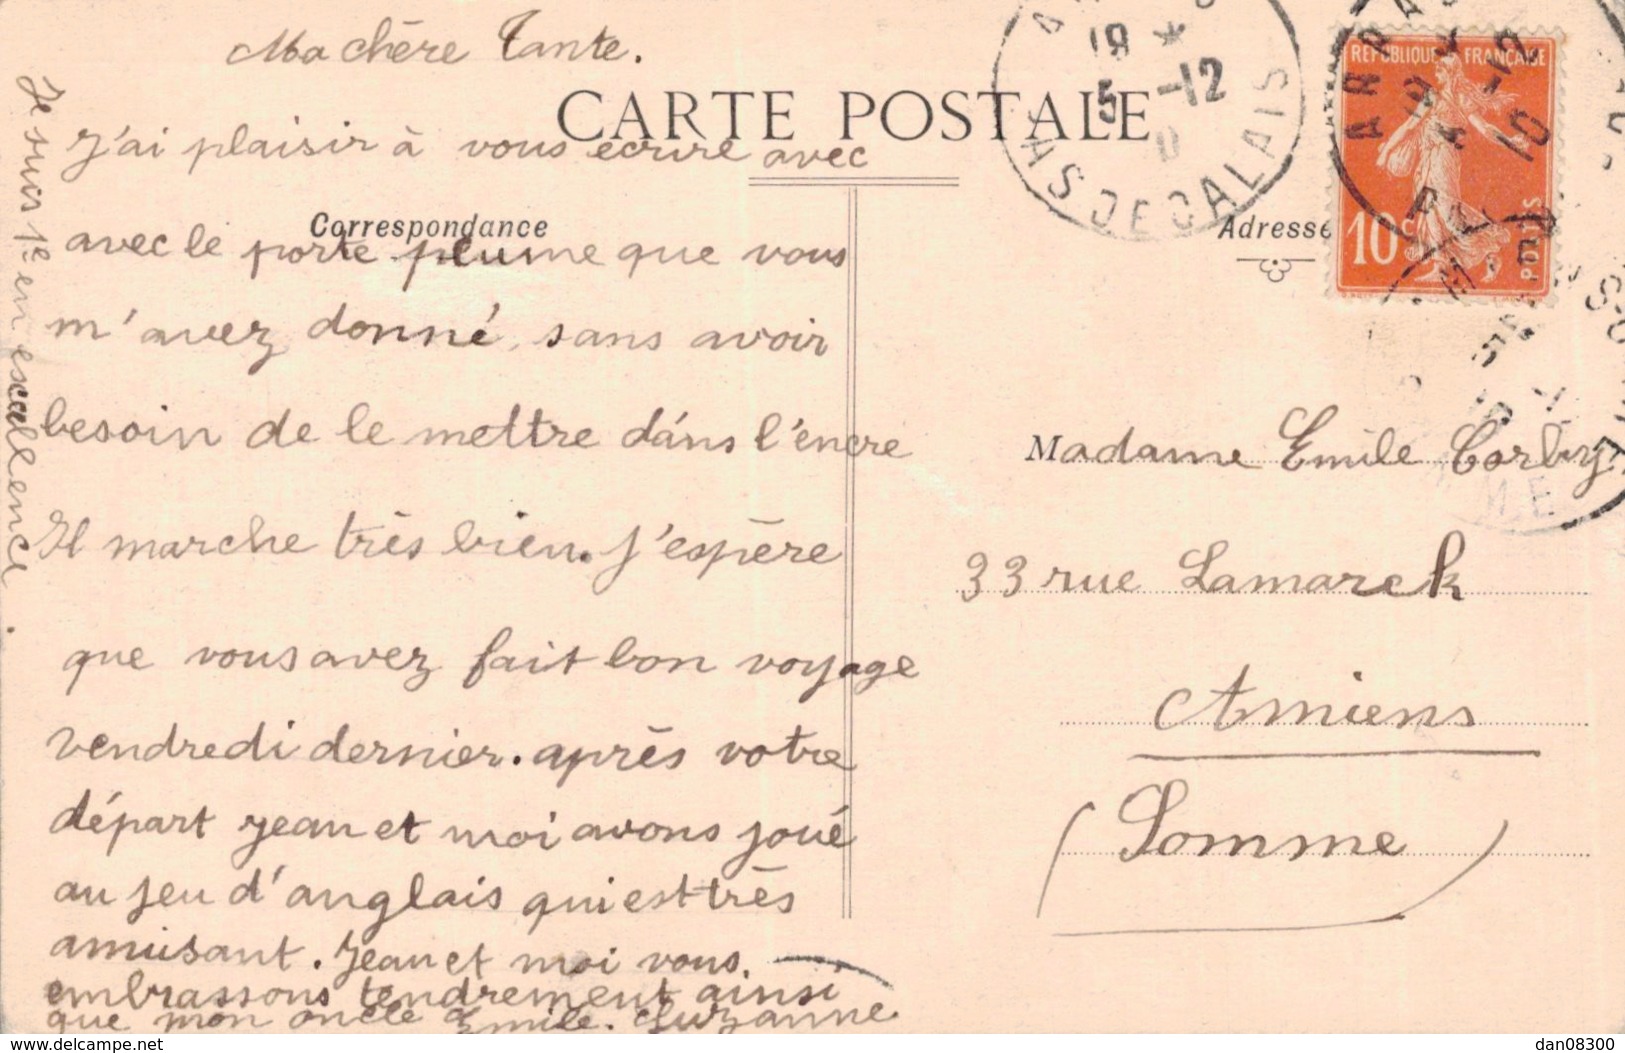 Ma chère Tante.
CARTE POSTALE
J'ai plaisir à vous écrire avec
Correspondance
avec le porte plume que vous
m'avez donné, sans avoir
besoin de le mettre dans l'encre
Il marche très bien. j'espère
que vous avez fait bon voyage
vendredi dernier. après votre
départ jean et moi avons joué
au jeu d'anglais qui est très
amusant. Jean et moi vous
embrassons tendrement ainsi
que mon oncle Emile. Suzanne
Je suis 1e en escallence.
Adresse
REPUBLIQUE FRANÇAISE
10c
POSTES
ARRAS
18 *
5 -12
PAS DE CALAIS
Madame Emile Corbry
33 rue Lamarck
Amiens
(Somme)
www.delcampe.net
dan08300